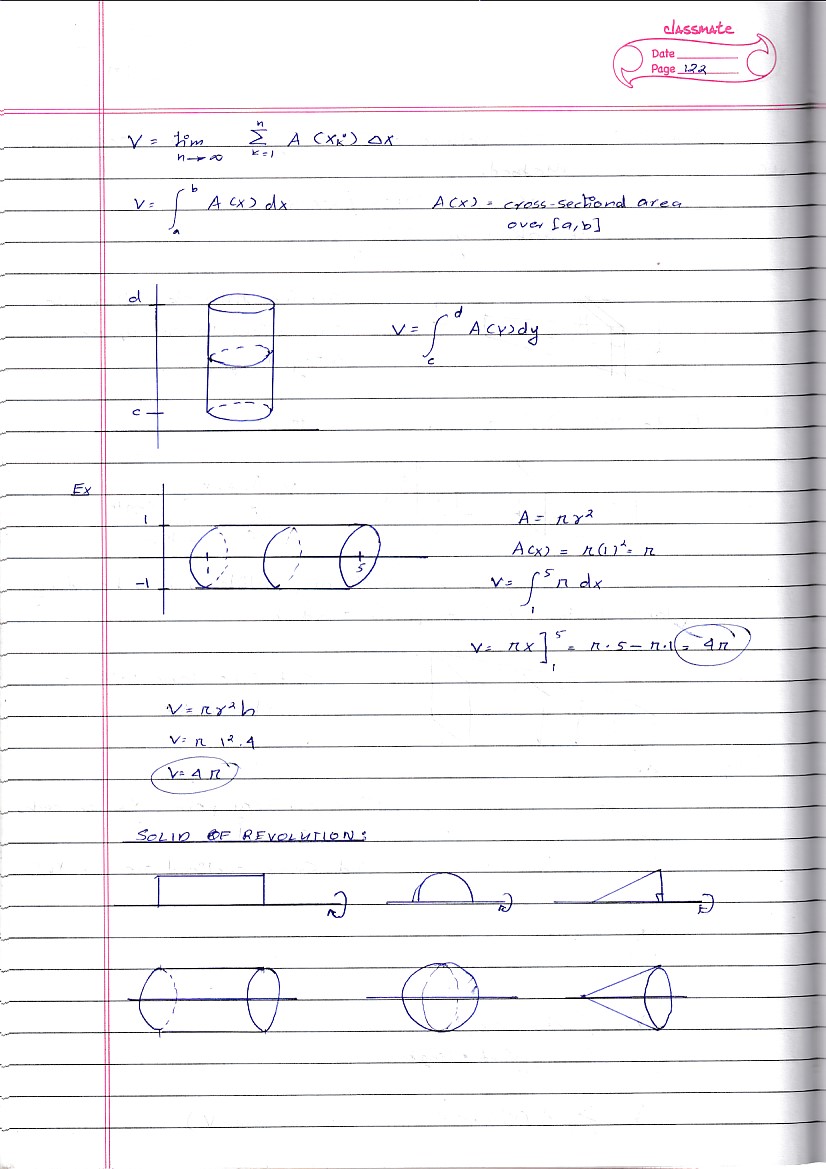 classmate
Date
Page 122
V = lim n→∞ n Σ k=1 A (Xk*) Δx
V = ∫ a b A (x) dx
A(x) = cross-sectional area
over [a,b]
d
c
V = ∫ c d A(y) dy
Ex
1
-1
1
5
A = πr²
A(x) = π(1)² = π
V = ∫ 1 5 π dx
V = πx ] 1 5 = π·5 − π·1 = 4π
V = πr²h
V = π 1².4
V = 4π
SOLID OF REVOLUTION: